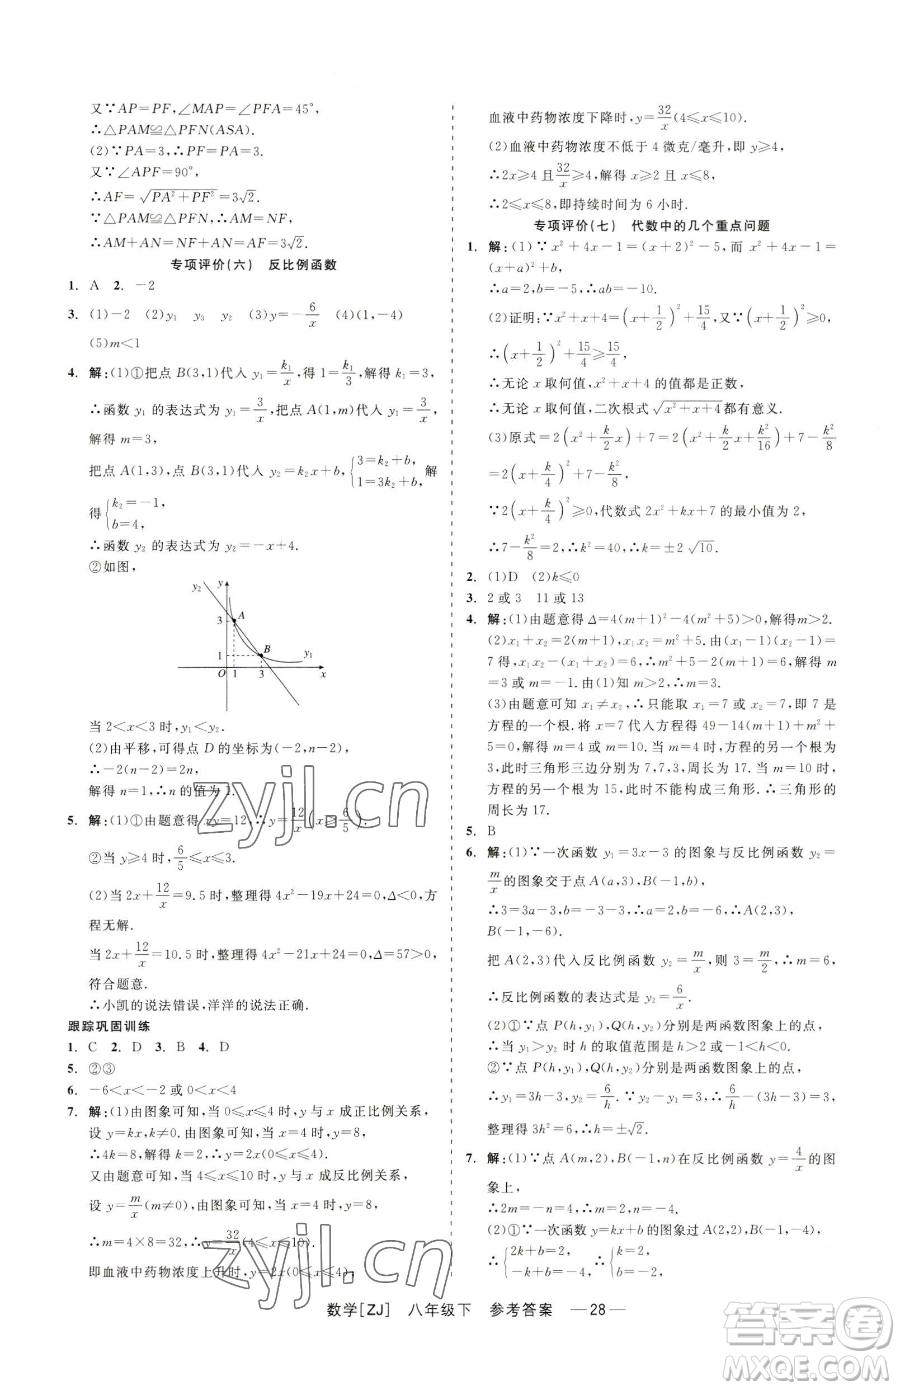 又∵AP=PF,∠MAP=∠PFA=45°,
∴△PAM≌△PFN(ASA).
(2)∵PA=3,∴PF=3.
又∵∠APF=90°,
∴AF=√(PA²+PF²)=3√2.
∵△PAM≌△PFN,∴AM=NF,
∴AM+AN=NF+AN=AF=3√2.
专项评价(六) 反比例函数
1. A 2. -2
3. (1)-2 (2)y₁ y₃ y₂ (3)y=-6/x (4)(1,-4)
(5)m<1
4. 解:(1)①把点 B(3,1)代入 y₁=k₁/x,得 1=k₁/3,解得 k₁=3,
∴函数 y₁ 的表达式为 y₁=3/x,把点 A(1,m)代入 y₁=3/x,
解得 m=3,
把点 A(1,3),点 B(3,1)代入 y₂=k₂x+b,{3=k₂+b, 1=3k₂+b, 解
得{k₂=-1, b=4,
∴函数 y₂ 的表达式为 y=-x+4.
②如图,
y₂ y
3 A
1 B y₁
O 1 3 x
当 2<x<3 时,y₁<y₂.
(2)由平移,可得点 D 的坐标为(-2,n-2),
∴-2(n-2)=2n,
解得 n=1,∴n 的值为 1.
5. 解:(1)①由题意得 xy=12,∴y=12/x(x≥6/5).
②当 y≥4 时,6/5≤x≤3.
(2)当 2x+12/x=9.5 时,整理得 4x²-19x+24=0,Δ<0,方
程无解.
当 2x+12/x=10.5 时,整理得 4x²-21x+24=0,Δ=57>0,
符合题意.
∴小凯的说法错误,洋洋的说法正确.
跟踪巩固训练
1. C 2. D 3. B 4. D
5. ②③
6. -6<x<-2 或 0<x<4
7. 解:(1)由图象可知,当 0≤x≤4 时,y 与 x 成正比例关系,
设 y=kx,由图象可知,当 x=4 时,y=8,
∴4k=8,解得 k=2,∴y=2x(0≤x≤4).
又由题意可知,当 4≤x≤10 时,y 与 x 成反比例关系,
设 y=m/x(m≠0),由图象可知,当 x=4 时,y=8,
∴m=4×8=32,∴y=32/x(4≤x≤10).
即血液中药物浓度上升时,y=2x(0≤x≤4),
血液中药物浓度下降时,y=32/x(4≤x≤10).
(2)血液中药物浓度不低于 4 微克/毫升,即 y≥4,
∴2x≥4 且32/x≥4,∴x≥2 且 x≤8,
∴2≤x≤8,即持续时间为 6 小时.
专项评价(七) 代数中的几个重点问题
1. 解:(1)∵x²+4x-1=(x+2)²-5,而 x²+4x-1=
(x+a)²+b,∴a=2,b=-5,∴ab=-10.
(2)证明:∵x²+x+4=(x+1/2)²+15/4,又∵(x+1/2)²≥0,
∴(x+1/2)²+15/4≥15/4,
∴无论 x 取何值,x²+x+4 的值都是正数,
∴无论 x 取何值,二次根式√(x²+x+4)都有意义.
(3)原式=2(x²+k/2 x)+7=2(x²+k/2 x+k²/16)+7-k²/8
=2(x+k/4)²+7-k²/8.
∵2(x+k/4)²≥0,代数式 2x²+kx+7 的最小值为 2,
∴7-k²/8=2,∴k²=40,解得 k=±2√10.
2. (1)D (2)k≤0
3. 2 或 3 11 或 13
4. 解:(1)由题意得 Δ=4(m+1)²-4(m²+5)>0,解得m>2.
(2)x₁+x₂=2(m+1),x₁x₂=m²+5,由(x₁-1)(x₂-1)=
7得,x₁x₂-(x₁+x₂)=6,∴m²+5-2(m+1)=6,解得
m=3 或 m=-1.由(1)知 m>2,∴m=3.
(3)由题意可知 x₁≠x₂,∴只能取 x₁=7 或 x₂=7,即 7 是
方程的一个根.将 x=7 代入方程得 49-14(m+1)+m²+
5=0,解得 m=4 或 m=10.当 m=4 时,方程的另一根为
3,此时三角形三边分别为 7,7,3,周长为 17.当 m=10时,
方程的另一根为 15,此时不能构成三角形.∴三角形的
周长为 17.
5. B
6. 解:(1)∵一次函数 y₁=3x-3 的图象与反比例函数 y₂=
m/x的图象交于点 A(a,3),B(-1,b),
∴3=3a-3,b=-3-3,∴a=2,b=-6,∴A(2,3),
B(-1,-6).
把 A(2,3)代入反比例函数 y₂=m/x,则 3=m/2,∴m=6,
∴反比例函数的表达式是 y₂=6/x.
(2)①∵点 P(h,y₁),Q(h,y₂)分别是两函数图象上的点,
∴当 y₁>y₂ 时 h 的取值范围是 h>2 或-1<h<0.
②∵点 P(h,y₁),Q(h,y₂)分别是两函数图象上的点,
∴y₁=3h-3,y₂=6/h.∵y₂-y₁=3,∴6/h-(3h-3)=3,
整理得 3h²=6,∴h=±√2.
7. 解:(1)∵点 A(m,2),B(-1,n)在反比例函数 y=4/x的图
象上,
∴2m=4,-n=4,∴m=2,n=-4.
(2)①∵一次函数 y=kx+b 的图象过点 A(2,2),B(-1,-4),
∴{2k+b=2, -k+b=-4, ∴{k=2, b=-2,
zyjl.cn
zyjl.cn
数学[ZJ] 八年级下 参考答案 —28—
答案圈
MXQE.COM